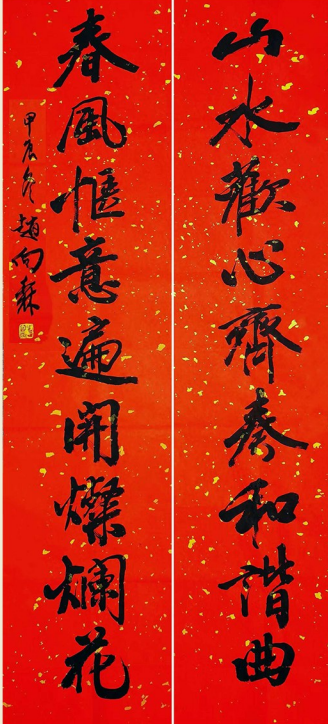 山水歡心齊奏和諧曲
春風愜意遍開燦爛花
甲辰冬趙向森